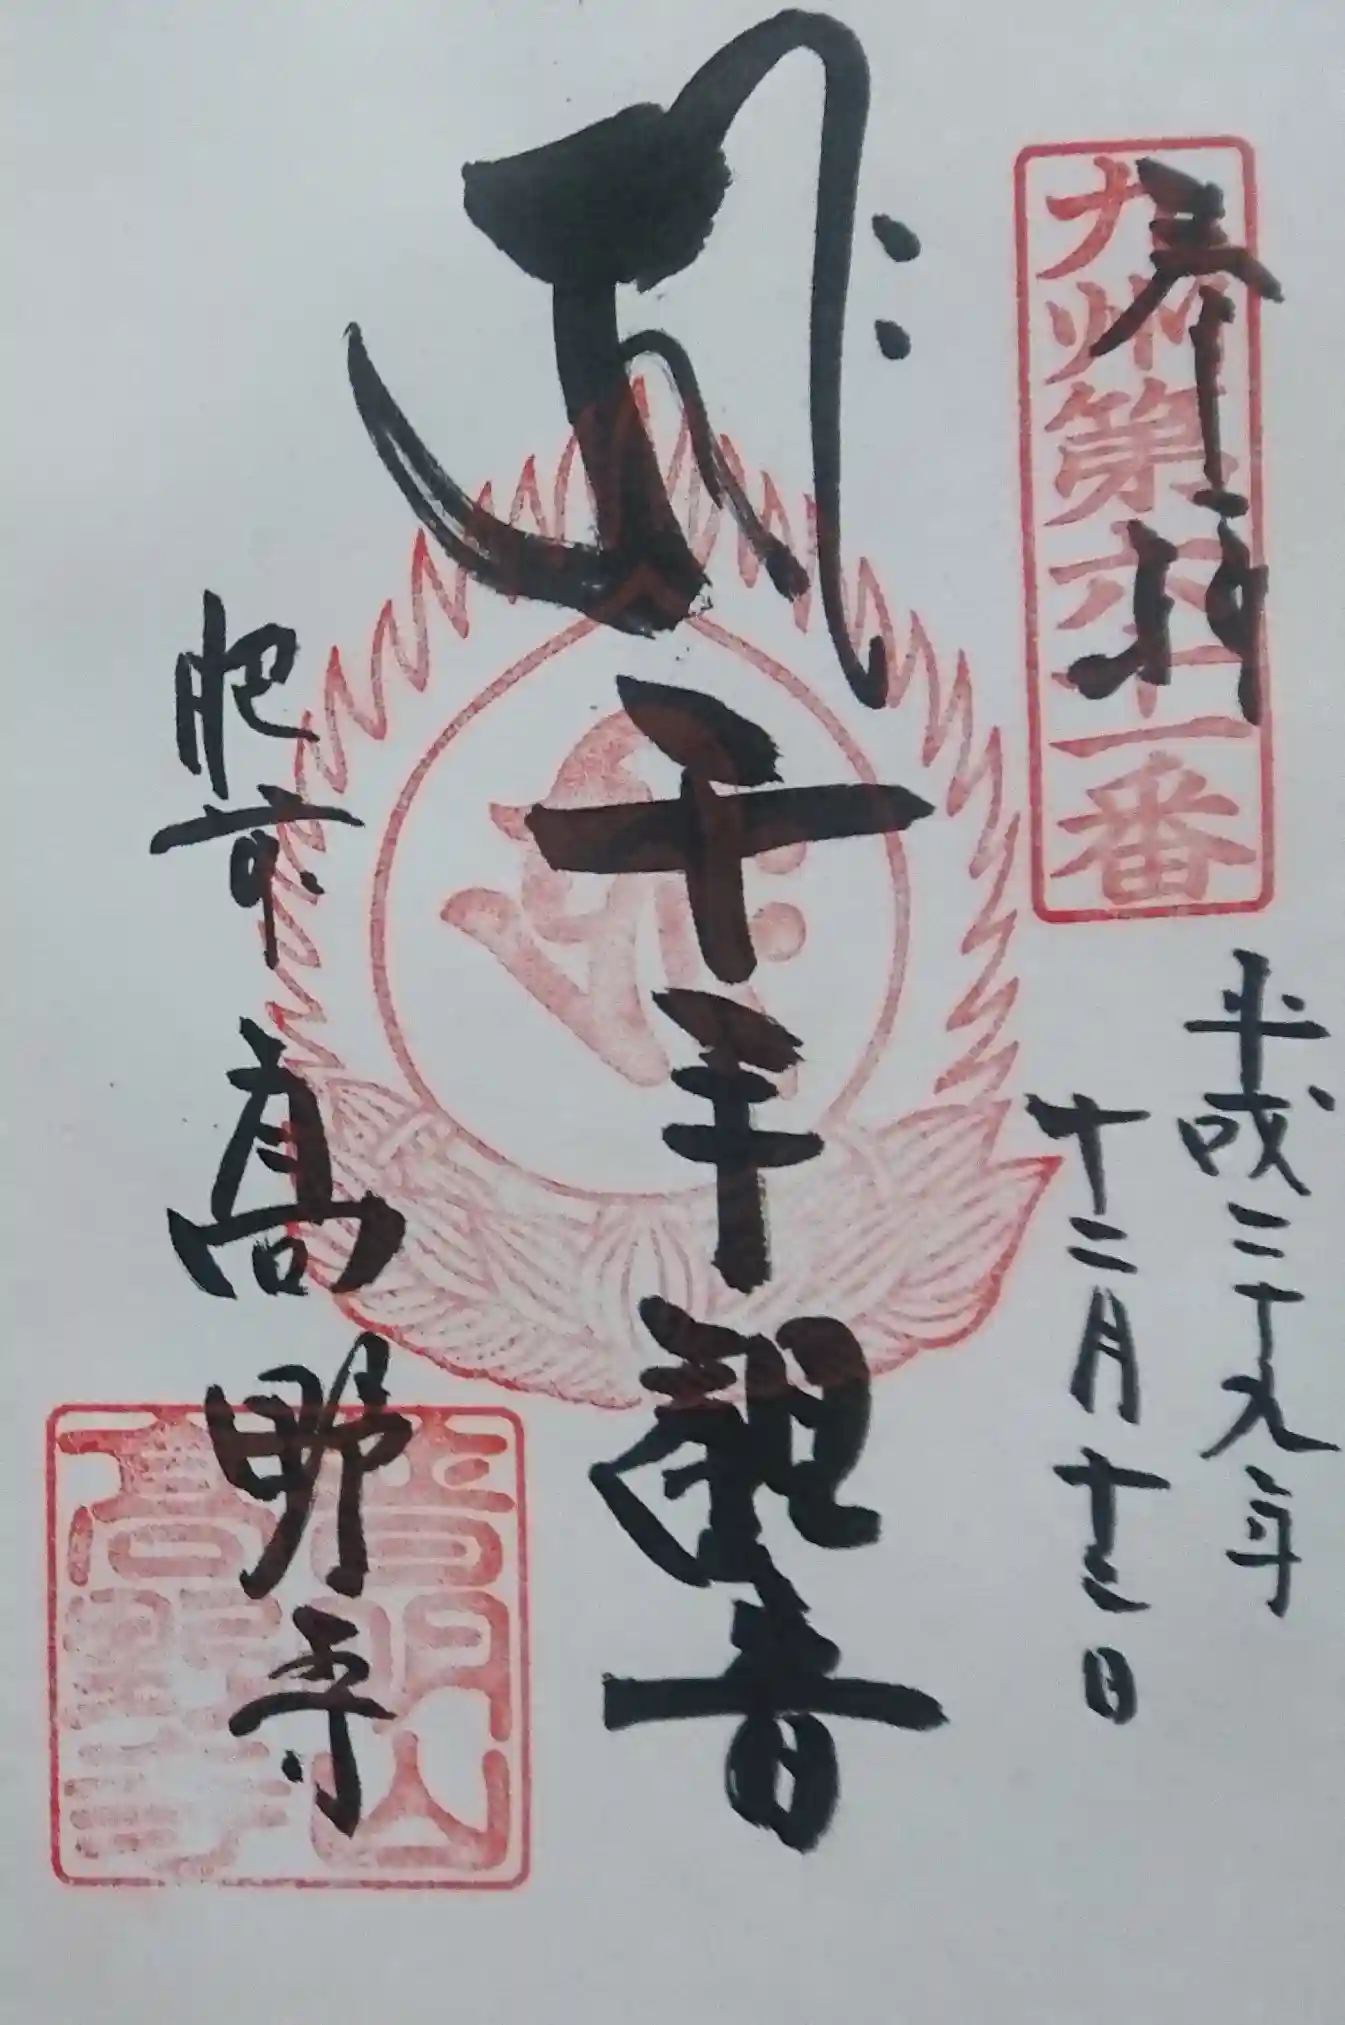 奉拝
九州第六十一番
平成二十九年
十二月十三日
千手観音
肥前
高野寺